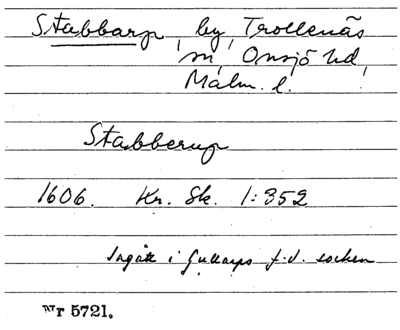 Stabbarp, by, Trollenäs
sn, Onsjö hd,
Malm. l.
Stabberup
1606. Kr. Sk. 1:352
Ingått i Gullarps f.d. socken
Nr 5721.